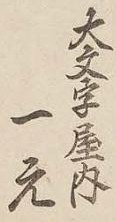 大文字屋内
一元